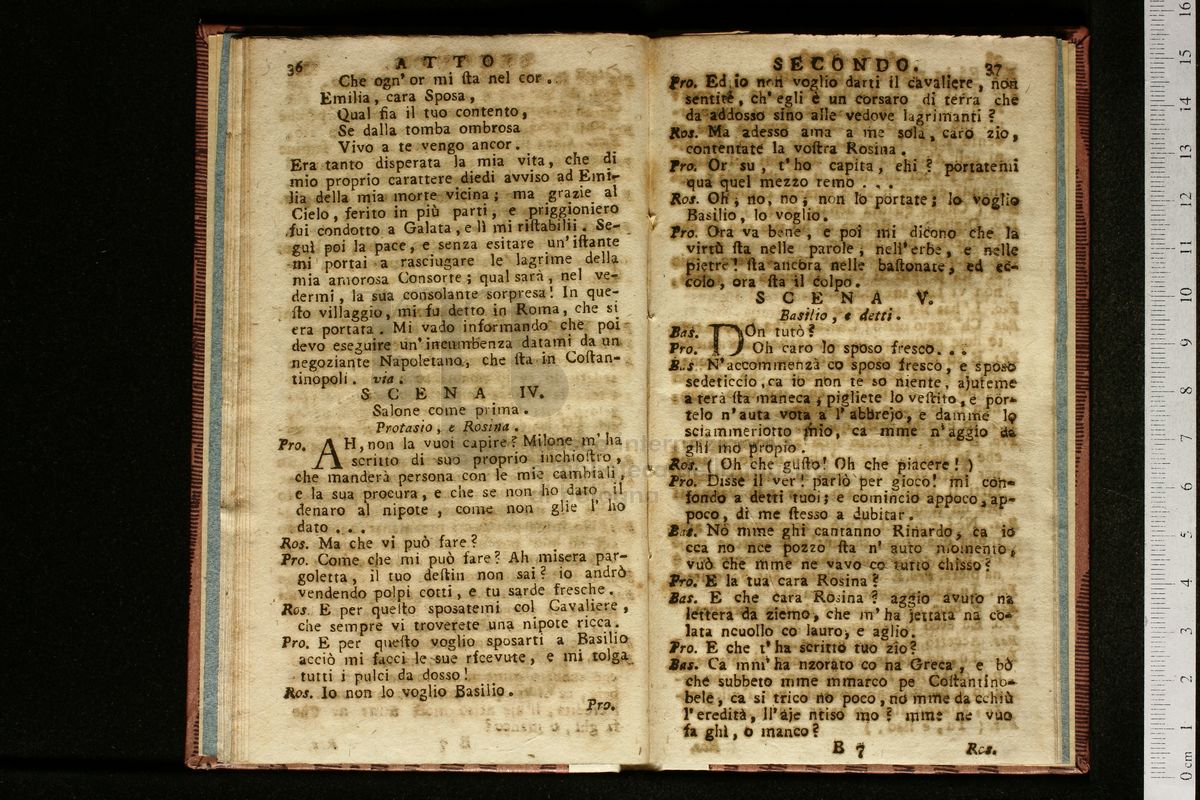 36 ATTO
Che ogn' or mi ſta nel cor..
Emilia, cara Sposa,
Qual fia il tuo contento,
Se dalla tomba ombrosa
Vivo a te vengo ancor.
Era tanto disperata la mia vita, che di
mio proprio carattere diedi avviso ad Emi-
lia della mia morte vicina; ma grazie al
Cielo, ferito in più parti, e priggioniero
fui condotto a Galata, e lì mi riſtabilii. Se-
guì poi la pace, e senza esitare un' iſtante
mi portai a rasciugare le lagrime della
mia amorosa Consorte; qual sarà, nel ve-
dermi, la sua consolante sorpresa! In que-
ſto villaggio, mi fu detto in Roma, che si
era portata. Mi vado informando che poi
devo eseguire un' incumbenza datami da un
negoziante Napoletano, che ſta in Coſtan-
tinopoli. via.
SCENA IV.
Salone come prima.
Protasio, e Rosina.
Pro. AH, non la vuoi capire? Milone m' ha
scritto di suo proprio inchioſtro,
che manderà persona con le mie cambiali,
e la sua procura, e che se non ho dato il
denaro al nipote, come non glie l' ho
dato...
Ros. Ma che vi può fare?
Pro. Come che mi può fare? Ah misera par-
goletta, il tuo deſtin non sai? io andrò
vendendo polpi cotti, e tu sarde fresche.
Ros. E per queſto sposatemi col Cavaliere,
che sempre vi troverete una nipote ricca.
Pro. E per queſto voglio sposarti a Basilio
acciò mi facci le sue rfcevute, e mi tolga
tutti i pulci da dosso!
Ros. Io non lo voglio Basilio.
Pro.
SECONDO. 37
Pro. Ed io non voglio darti il cavaliere, non
sentite, ch' egli è un corsaro di terra che
da addosso sino alle vedove lagrimanti?
Ros. Ma adesso ama a me sola, caro zio,
contentate la voſtra Rosina.
Pro. Or su, t' ho capita, ehi? portatemi
qua quel mezzo remo...
Ros. Oh, no, no, non lo portate; lo voglio
Basilio, lo voglio.
Pro. Ora va bene, e poi mi dicono che la
virtù ſta nelle parole, nell' erbe, e nelle
pietre! ſta ancora nelle baſtonate, ed ec-
colo, ora ſta il colpo.
SCENA V.
Basilio, e detti.
Bas. DOn tutò?
Pro. Oh caro lo sposo fresco...
Bas. N' accommenzà co sposo fresco, e sposo
sedeticcio, ca io non te so niente, ajuteme
a terà ſta maneca, pigliete lo veſtito, e por-
telo n' auta vota a l' abbrejo, e damme lo
sciammeriotto mio, ca mme n' aggio da
ghi mo propio.
Ros. (Oh che guſto! Oh che piacere!)
Pro. Disse il ver! parlò per gioco! mi con-
fondo a detti tuoi; e comincio appoco, ap-
poco, di me ſtesso a dubitar.
Bas. Nò mme ghi cantanno Rinardo, ca io
cca no nce pozzo ſta n' auto momento,
vuò che mme ne vavo co tutto chisso?
Pro. E la tua cara Rosina?
Bas. E che cara Rosina? aggio avuto na
lettera da ziemo, che m' ha jettata na co-
lata ncuollo co lauro, e aglio.
Pro. E che t' ha scritto tuo zio?
Bas. Ca mm' ha nzorato co na Greca, e bò
che subbeto mme mmarco pe Coſtantino-
bele, ca si trico no poco, no mme da cchiù
l' eredità, ll' aje ntiso mo? mme ne vuo
fa ghi, o manco?
B 7 Ros.
0 cm 1 2 3 4 5 6 7 8 9 10 11 12 13 14 15 16